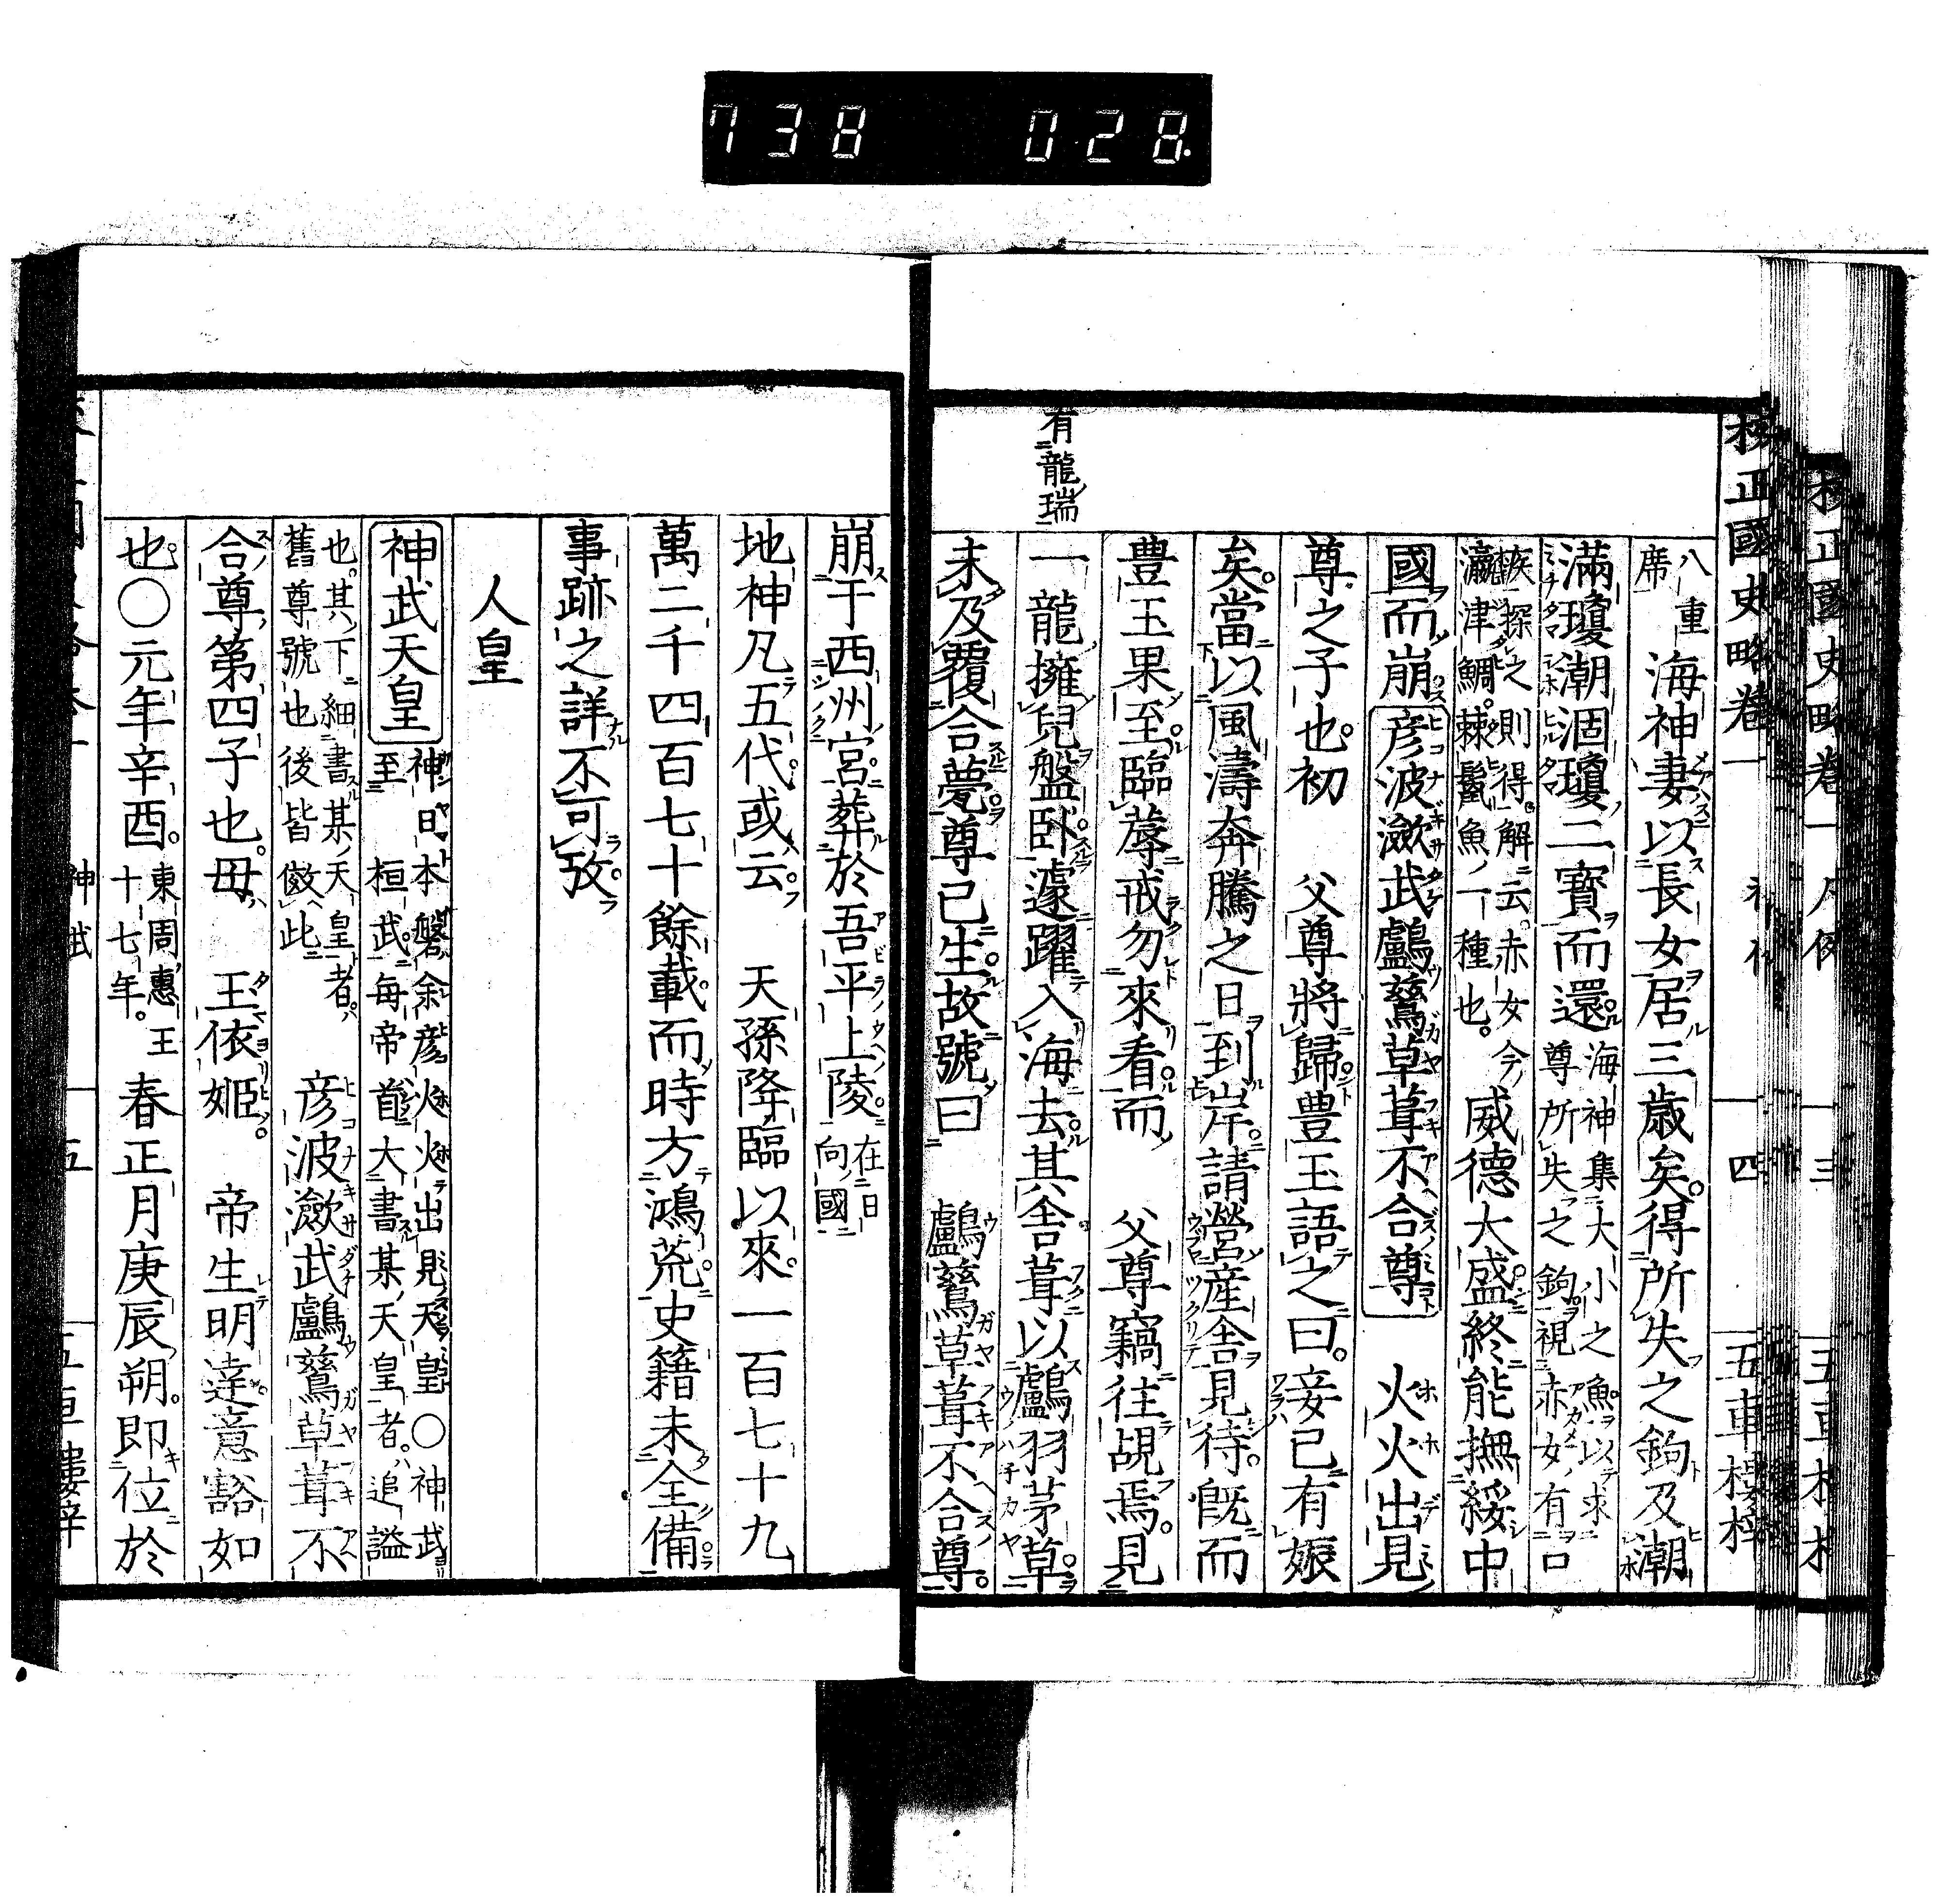 738 028
校正國史略卷一 凡例 三
校正國史略卷一 四 五車樓梓
八重
席
海神妻以長女居三歳矣。得所失之鉤及潮
滿瓊潮涸瓊二寶而還
海神集大小之魚以求
尊所失之鉤視赤女有口
疾探之則得。解云。赤女今
瀛津鯛。棘鬣魚一種也。
威德大盛終能撫綏中
國而崩 彦波瀲武鸕鶿草葺不合尊 火火出見
尊之子也。初 父尊將歸豊玉語之曰。妾已有娠
矣。當以風濤奔騰之日到岸。請營産舍見待。既而
豊玉果至臨蓐戒勿來看而 父尊竊往覘焉。見
有龍瑞
一龍擁兒盤臥遽躍入海去其舍葺以鸕羽茅草。
未及覆合甍尊已生故號曰 鸕鶿草葺不合尊。
崩于西州宮葬於吾平上陵
在日
向國
地神凡五代。或云。 天孫降臨以來。一百七十九
萬二千四百七十餘載而時方鴻荒史籍未全備
事跡之詳不可攷
人皇
神武天皇
神日本磐余彦火火出見天皇〇神武
至桓武。每帝首大書某天皇者。追謚
也。其下細書某天皇者。
舊尊號也後皆倣此
彦波瀲武鸕鶿草葺不
合尊第四子也。母 玉依姬。 帝生明達意豁如
也。〇元年辛酉。
東周惠王
十七年。
春正月庚辰朔。即位於
神武 五